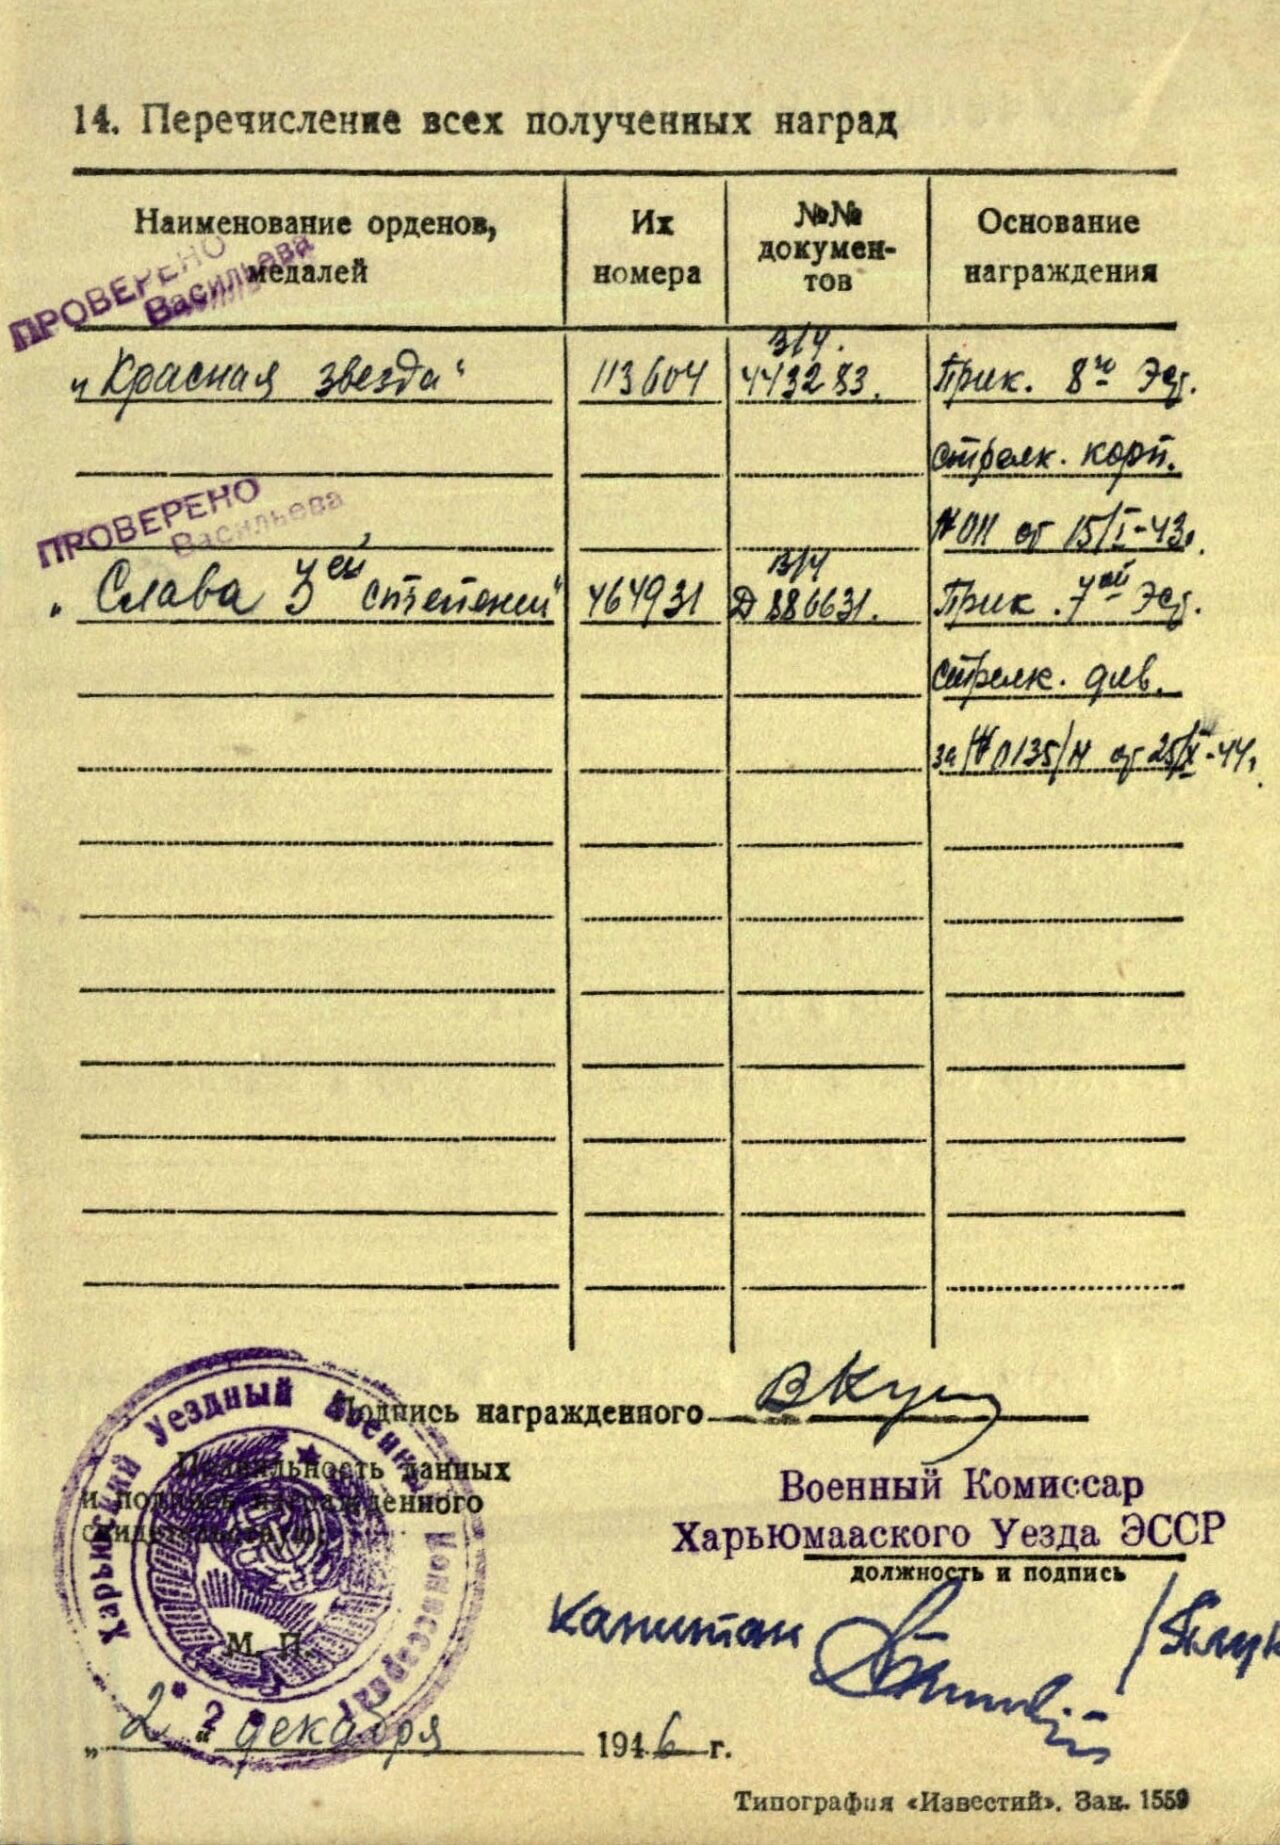 14. Перечисление всех полученных наград
Наименование орденов, медалей
Их номера
№№ докумен-
тов
Основание награждения
ПРОВЕРЕНО
Васильева
„Красная звезда“
113604
в/ч.
443283.
Прик. 8го Эст.
стрелк. корп.
№ 011 от 15/I-43.
ПРОВЕРЕНО
Васильева
„Слава 3ей степени“
464931
в/ч
Д 886631.
Прик. 7ой Эст.
стрелк. див.
за № 0135/н от 25/XI-44.
Подпись награжденного
Правильность данных
и подпись награжденного
свидетельствую:
Военный Комиссар
ХарьЮмааского Уезда ЭССР
должность и подпись
капитан
М. П.
Харьюмский Уездный Военный Комиссариат
* 2 *
„2“ декабря 1946 г.
Типография «Известий». Зак. 1559